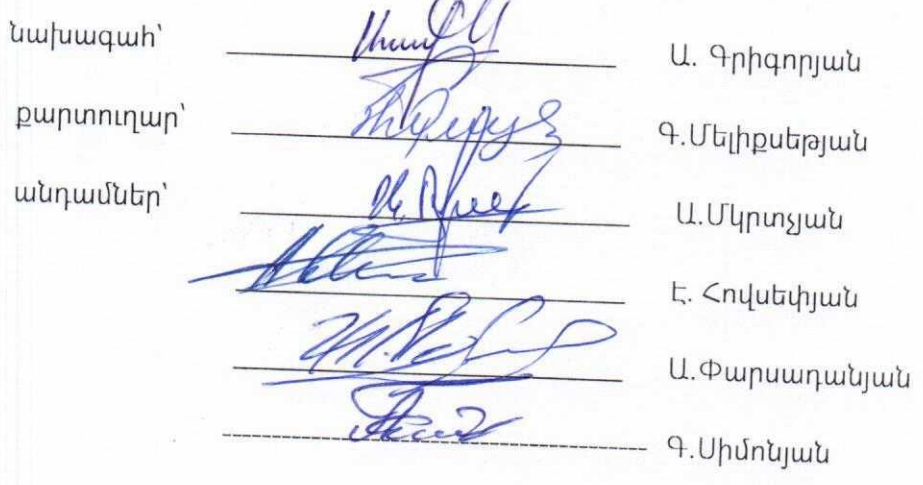 նախագահ՝ Ա. Գրիգորյան
քարտուղար՝ Գ.Մելիքսեթյան
անդամներ՝ Ա.Մկրտչյան
Է. Հովսեփյան
Ա.Փարսադանյան
Գ.Սիմոնյան